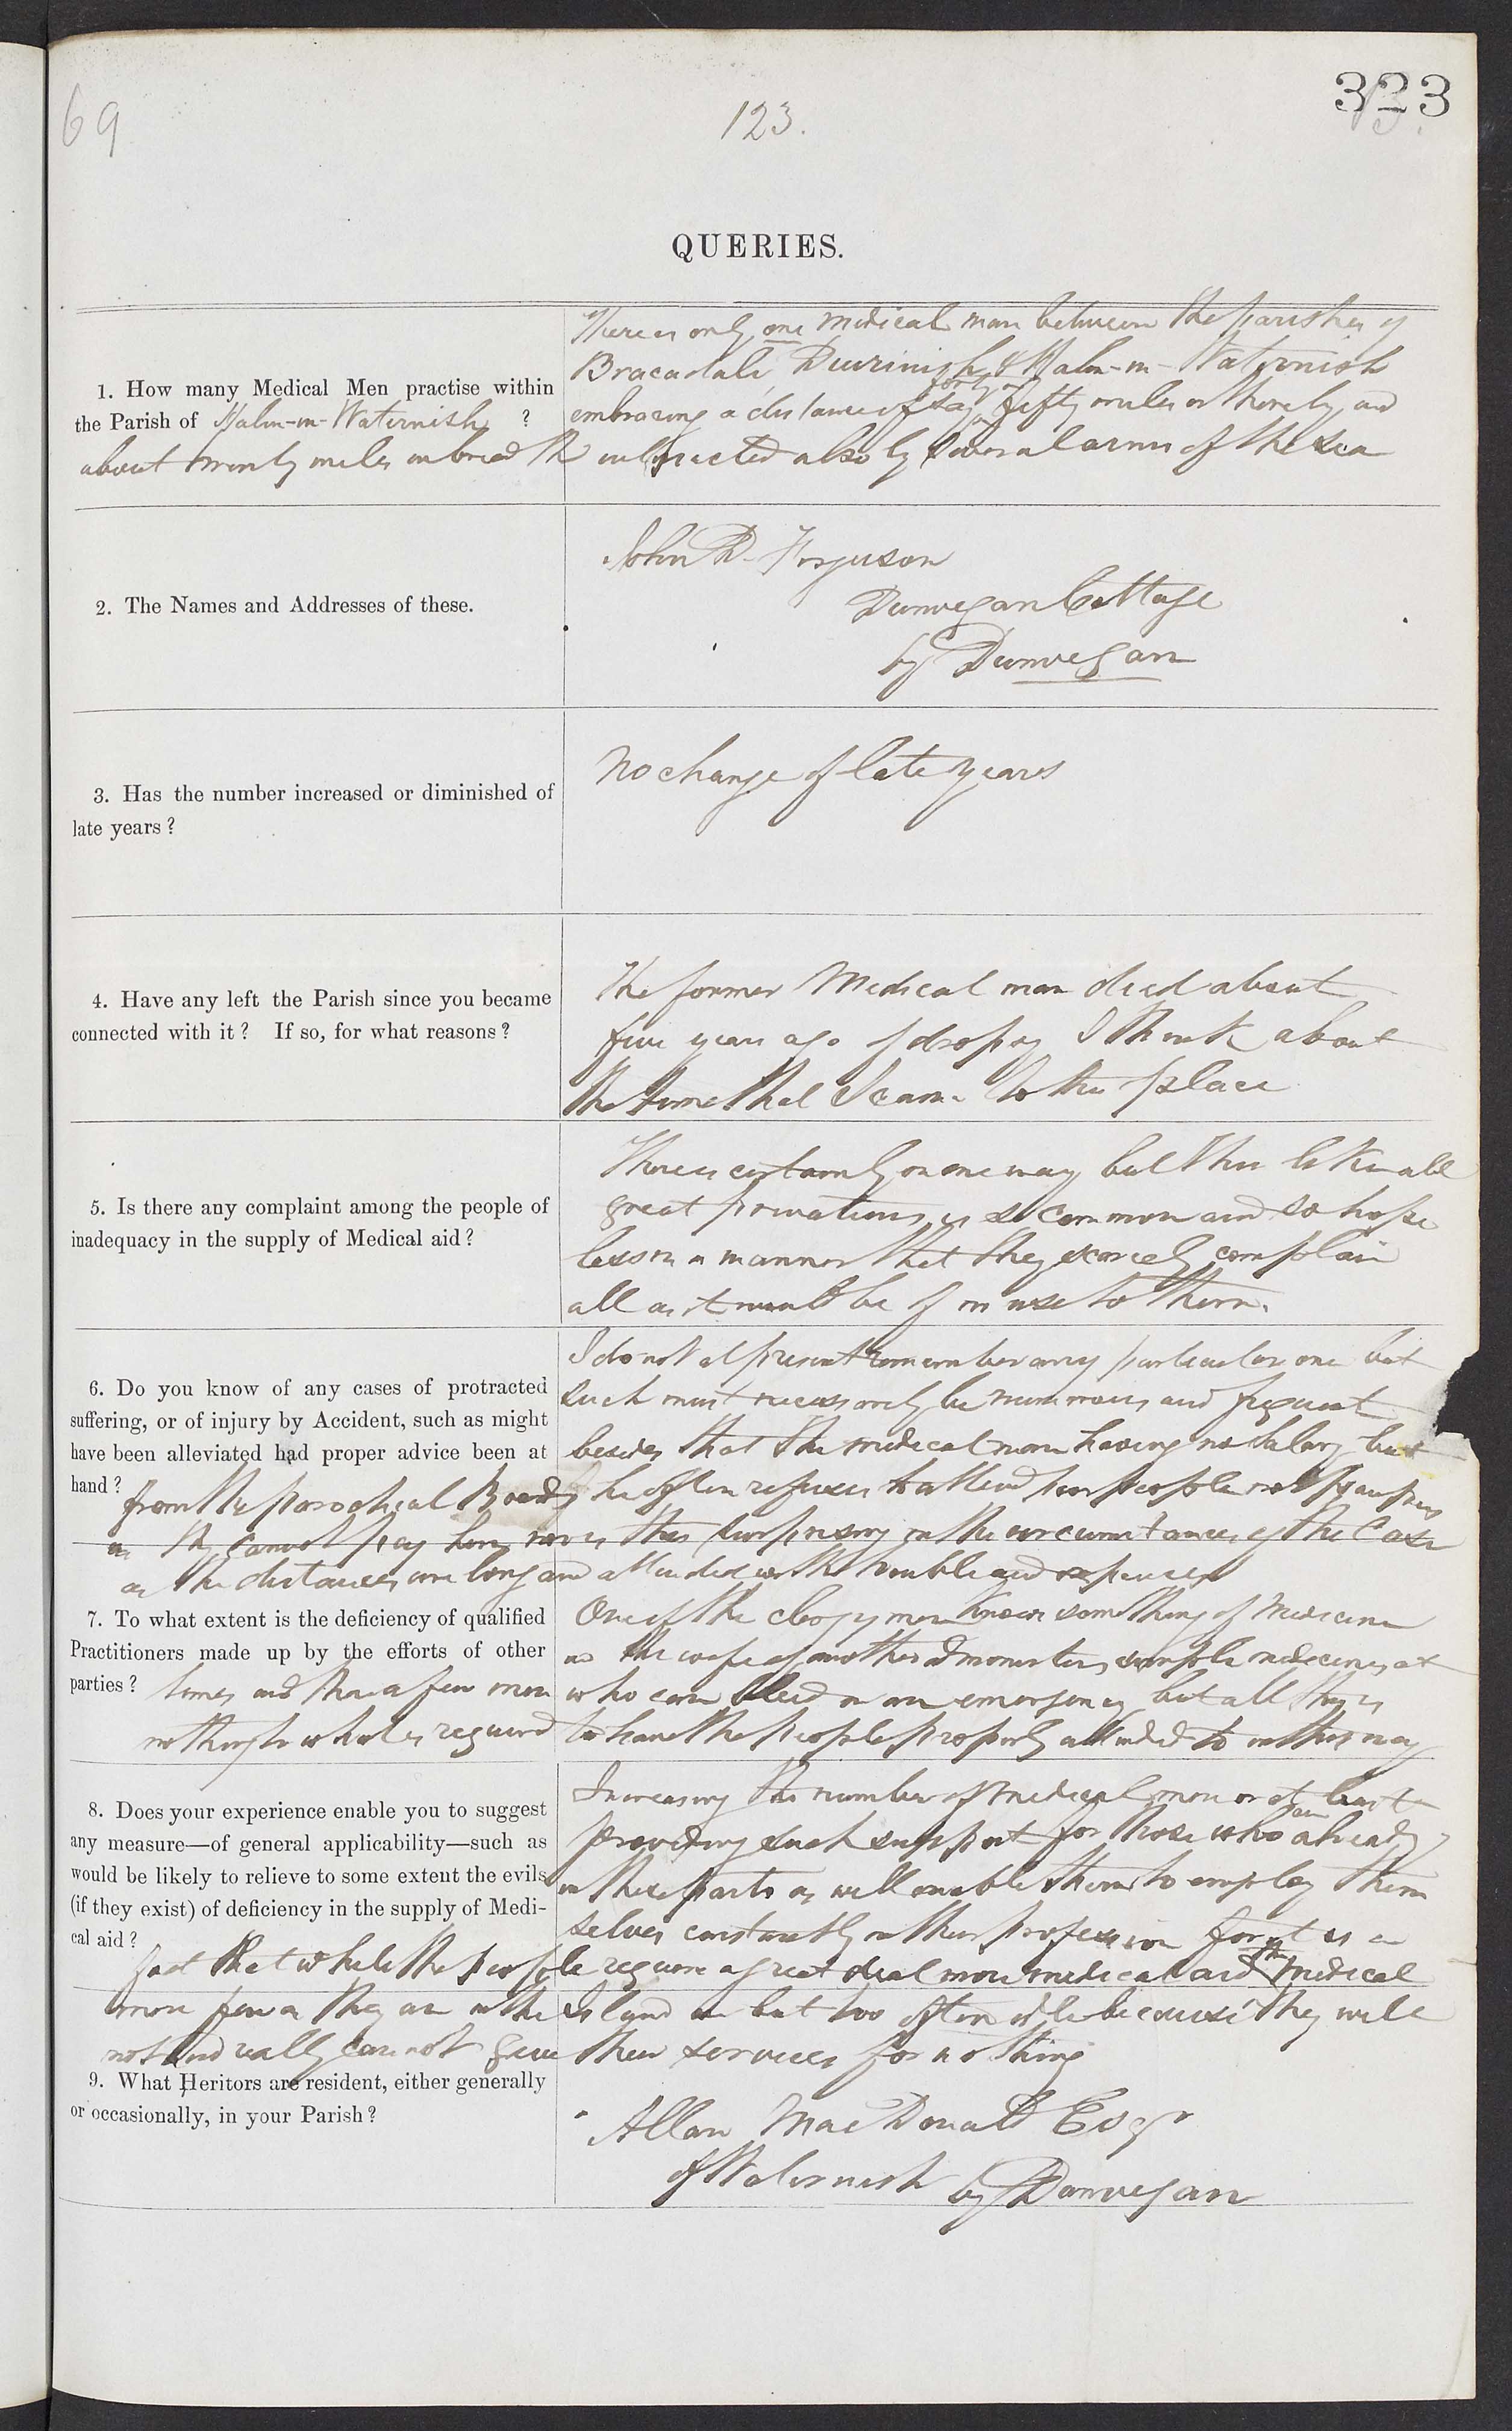 69
123.
323
QUERIES.
1. How many Medical Men practise within
the Parish of Halin-in-Waternish ?
There is only one medical man between the parishes of
Bracadale, Duirinish & Halin-in-Waternish
forty or
embracing a distance of say fifty miles or thereby, and
about twenty miles in breadth intersected also by several arms of the sea
2. The Names and Addresses of these.
John D. Ferguson
Dunvegan Cottage
by Dunvegan
3. Has the number increased or diminished of
late years ?
No change of late years
4. Have any left the Parish since you became
connected with it ? If so, for what reasons ?
The former Medical man died about
five years ago of dropsy I think about
the time that I came to the place
5. Is there any complaint among the people of
inadequacy in the supply of Medical aid ?
There is certainly in one way but this like all
great privations is so common and so hope
less in a manner that they scarcely complain
all as it would be of no use to them.
6. Do you know of any cases of protracted
suffering, or of injury by Accident, such as might
have been alleviated had proper advice been at
hand ?
I do not at present remember any particular one but
such must necessarily be numerous and frequent
besides that the medical man having no salary but
from the parochial Boards he often refuses to attend poor people not paupers
as they cannot pay him nor is this surprising in the circumstances of the case
as the distances are long and attended with trouble and expenses
7. To what extent is the deficiency of qualified
Practitioners made up by the efforts of other
parties ?
One of the clergymen knows something of Medicine
as the wife of another administers simple medicines at
times and there a few men who can bleed in an emergency but all this is
nothing to what is required to have the people properly attended to in this way
8. Does your experience enable you to suggest
any measure—of general applicability—such as
would be likely to relieve to some extent the evils
(if they exist) of deficiency in the supply of Medi-
cal aid ?
Increasing the number of medical men or at least
are
providing such support for those who already
in these parts as will enable them to employ them
selves constantly in their profession for it is a
fact that while the people require a great deal more medical aid the medical
men few as they are in the Island are but too often idle because they will
not and really cannot give their services for nothing
9. What Heritors are resident, either generally
or occasionally, in your Parish ?
Allan MacDonald Esqr
of Waternish by Dunvegan